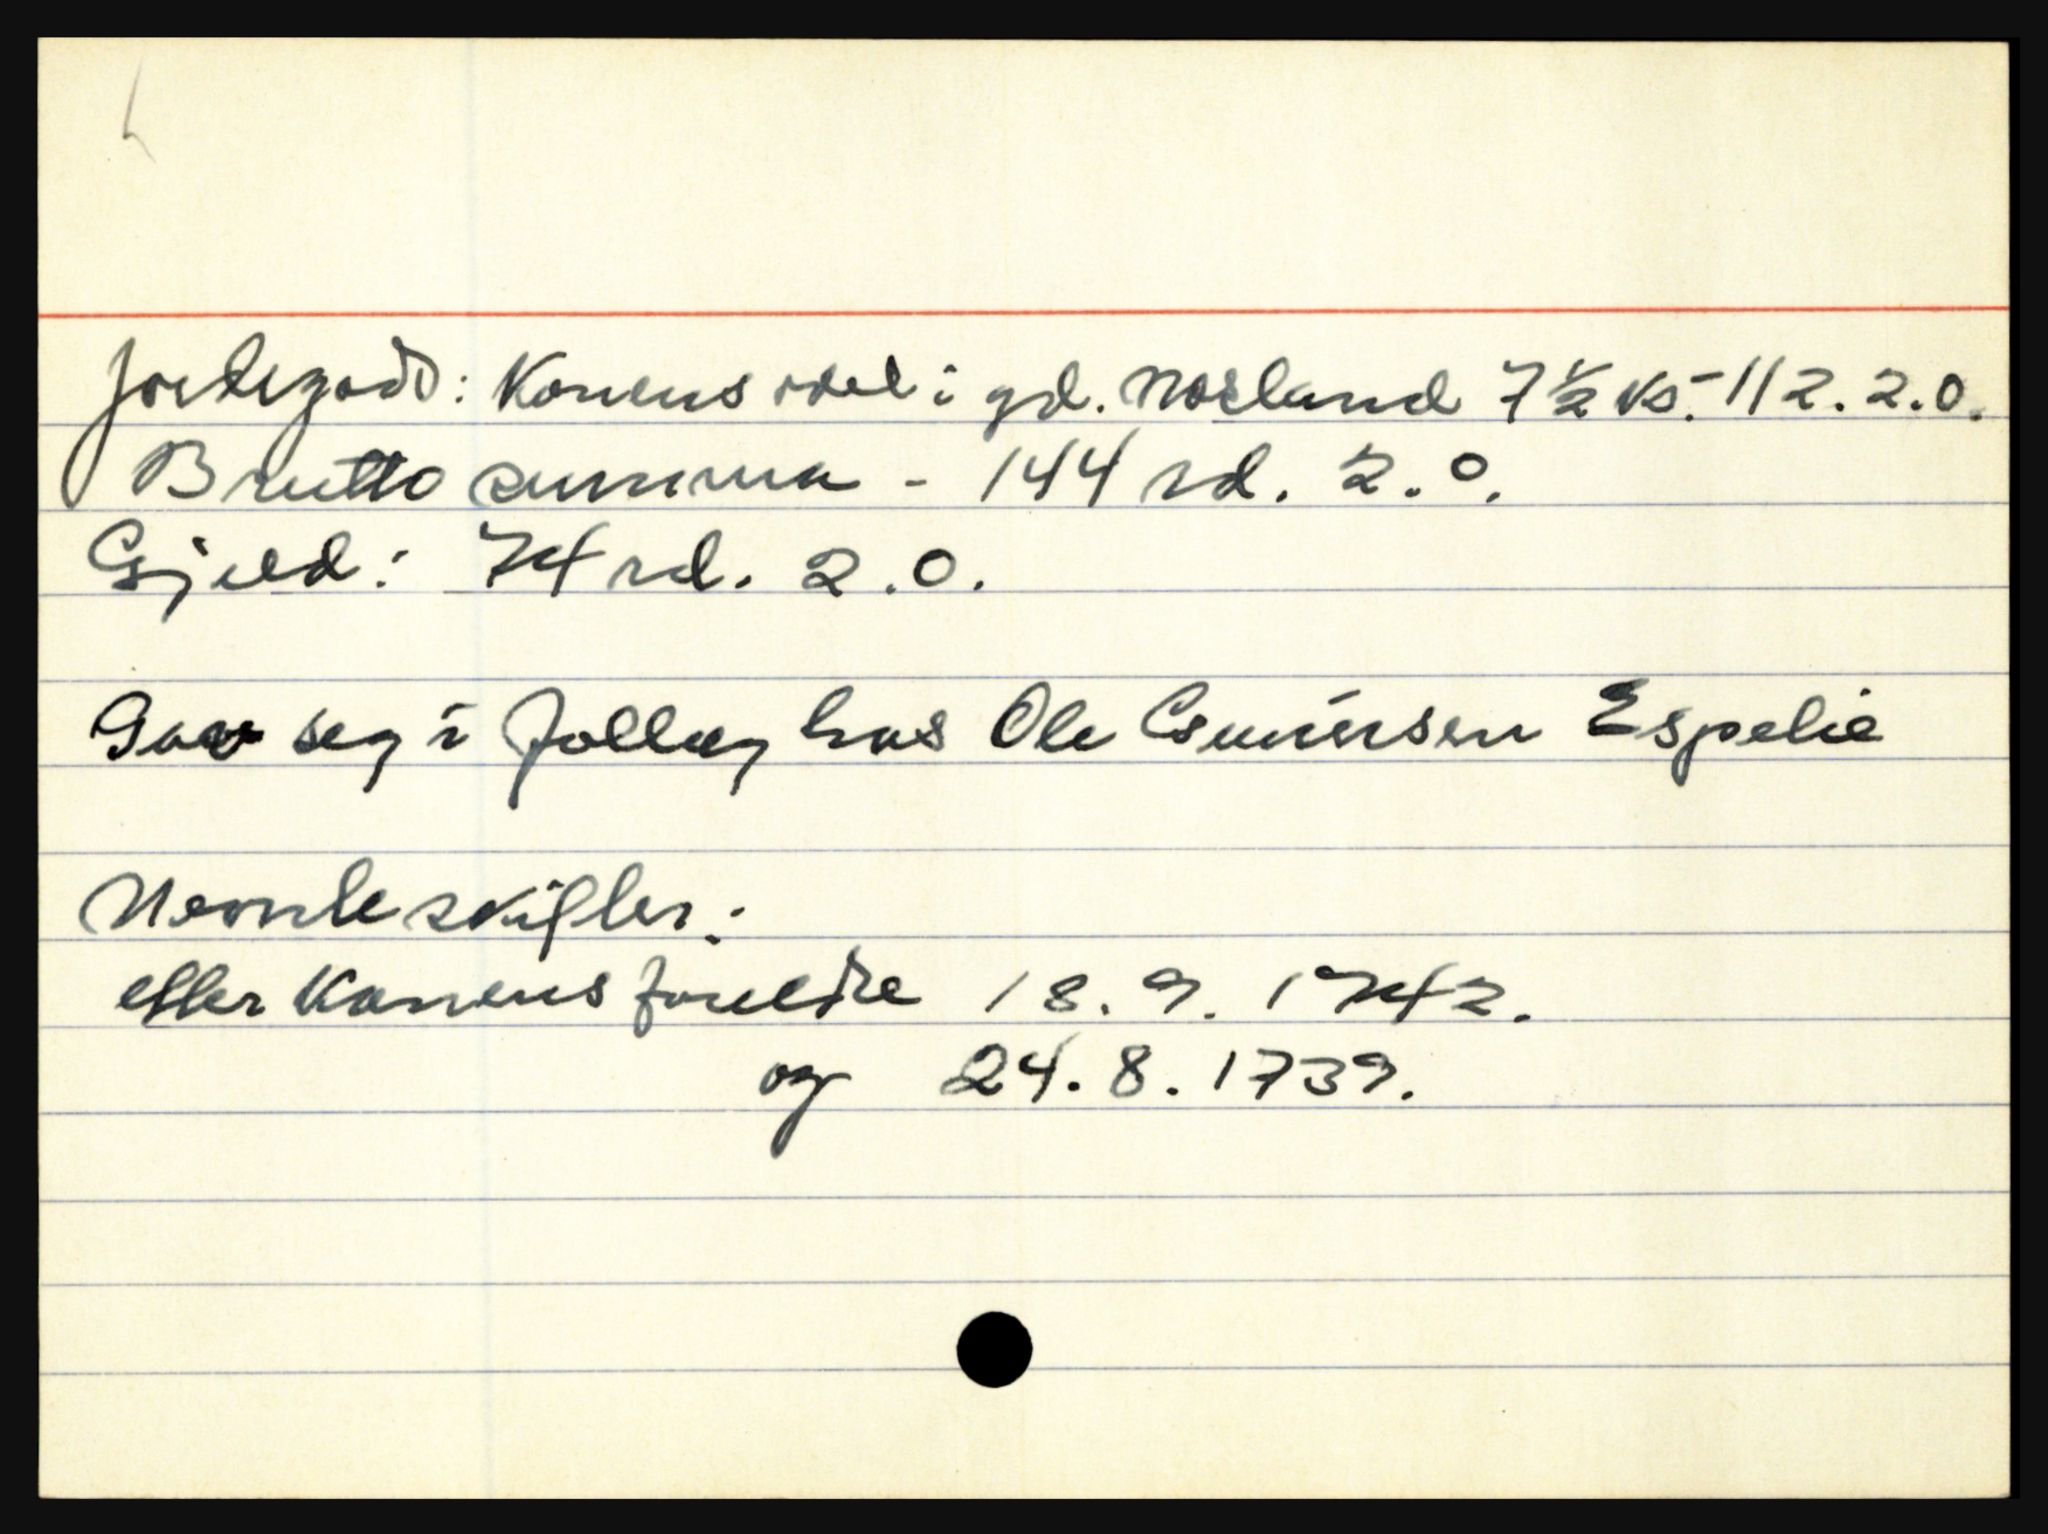 Jordegods: Konens odel i gd. Norland 7 1/2 ks. - 112.2.0.
Brutto summa - 144 rd. 2.0.
Gjeld: 74 rd. 2.0.
Gav seg i follog hos Ole Gunersen Espelie
Nevnte skifter:
efter Konens foreldre 18.9.1742.
og 24.8.1739.